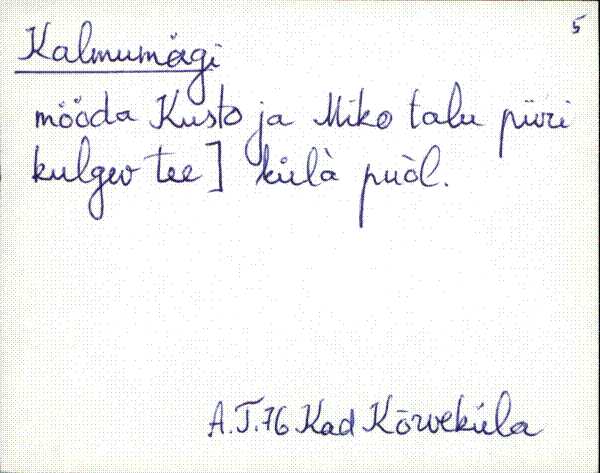 5
Kalmumägi
mööda Kusto ja Miko talu piiri
kulgev tee] külà puòl.
A.T.76 Kad Kõrveküla